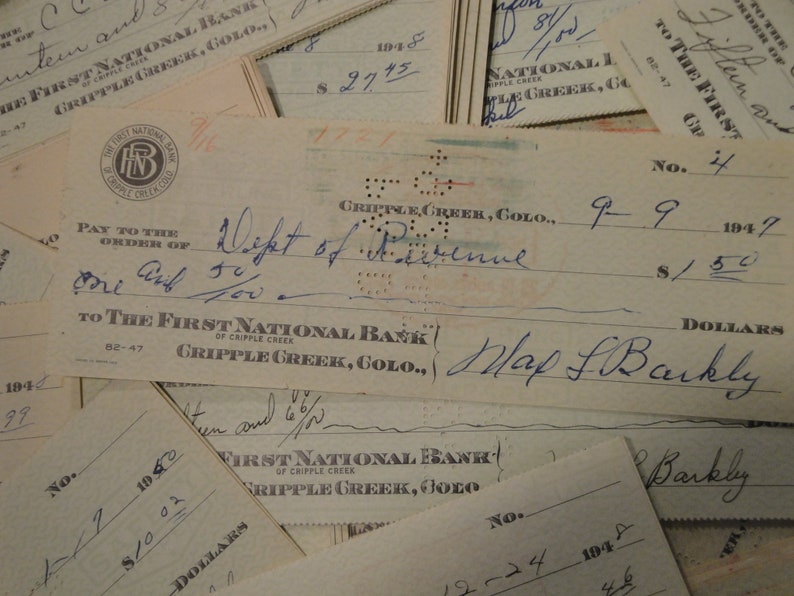 ORDER OF
THE FIRST NATIONAL BANK
OF CRIPPLE CREEK
CRIPPLE CREEK, COLO.,
82-47
8 1948
$ 27.45
81/100
NATIONAL BANK
CRIPPLE CREEK, COLO.,
TO THE
ORDER OF
Fifteen and
TO THE FIRST
82-47
THE FIRST NATIONAL BANK
OF CRIPPLE CREEK, COLO.
FNB
9/16
No. 4
CRIPPLE CREEK, COLO., 9-9 1947
PAY TO THE
ORDER OF Dept of Revenue $1 50
One and 50/100 DOLLARS
TO THE FIRST NATIONAL BANK
OF CRIPPLE CREEK
82-47 CRIPPLE CREEK, COLO.,
Max L Barkly
194
99
and 66/100
FIRST NATIONAL BANK
OF CRIPPLE CREEK
CRIPPLE CREEK, COLO
Barkly
No.
1950
$10 02
DOLLARS
No.
12-24 1948
46